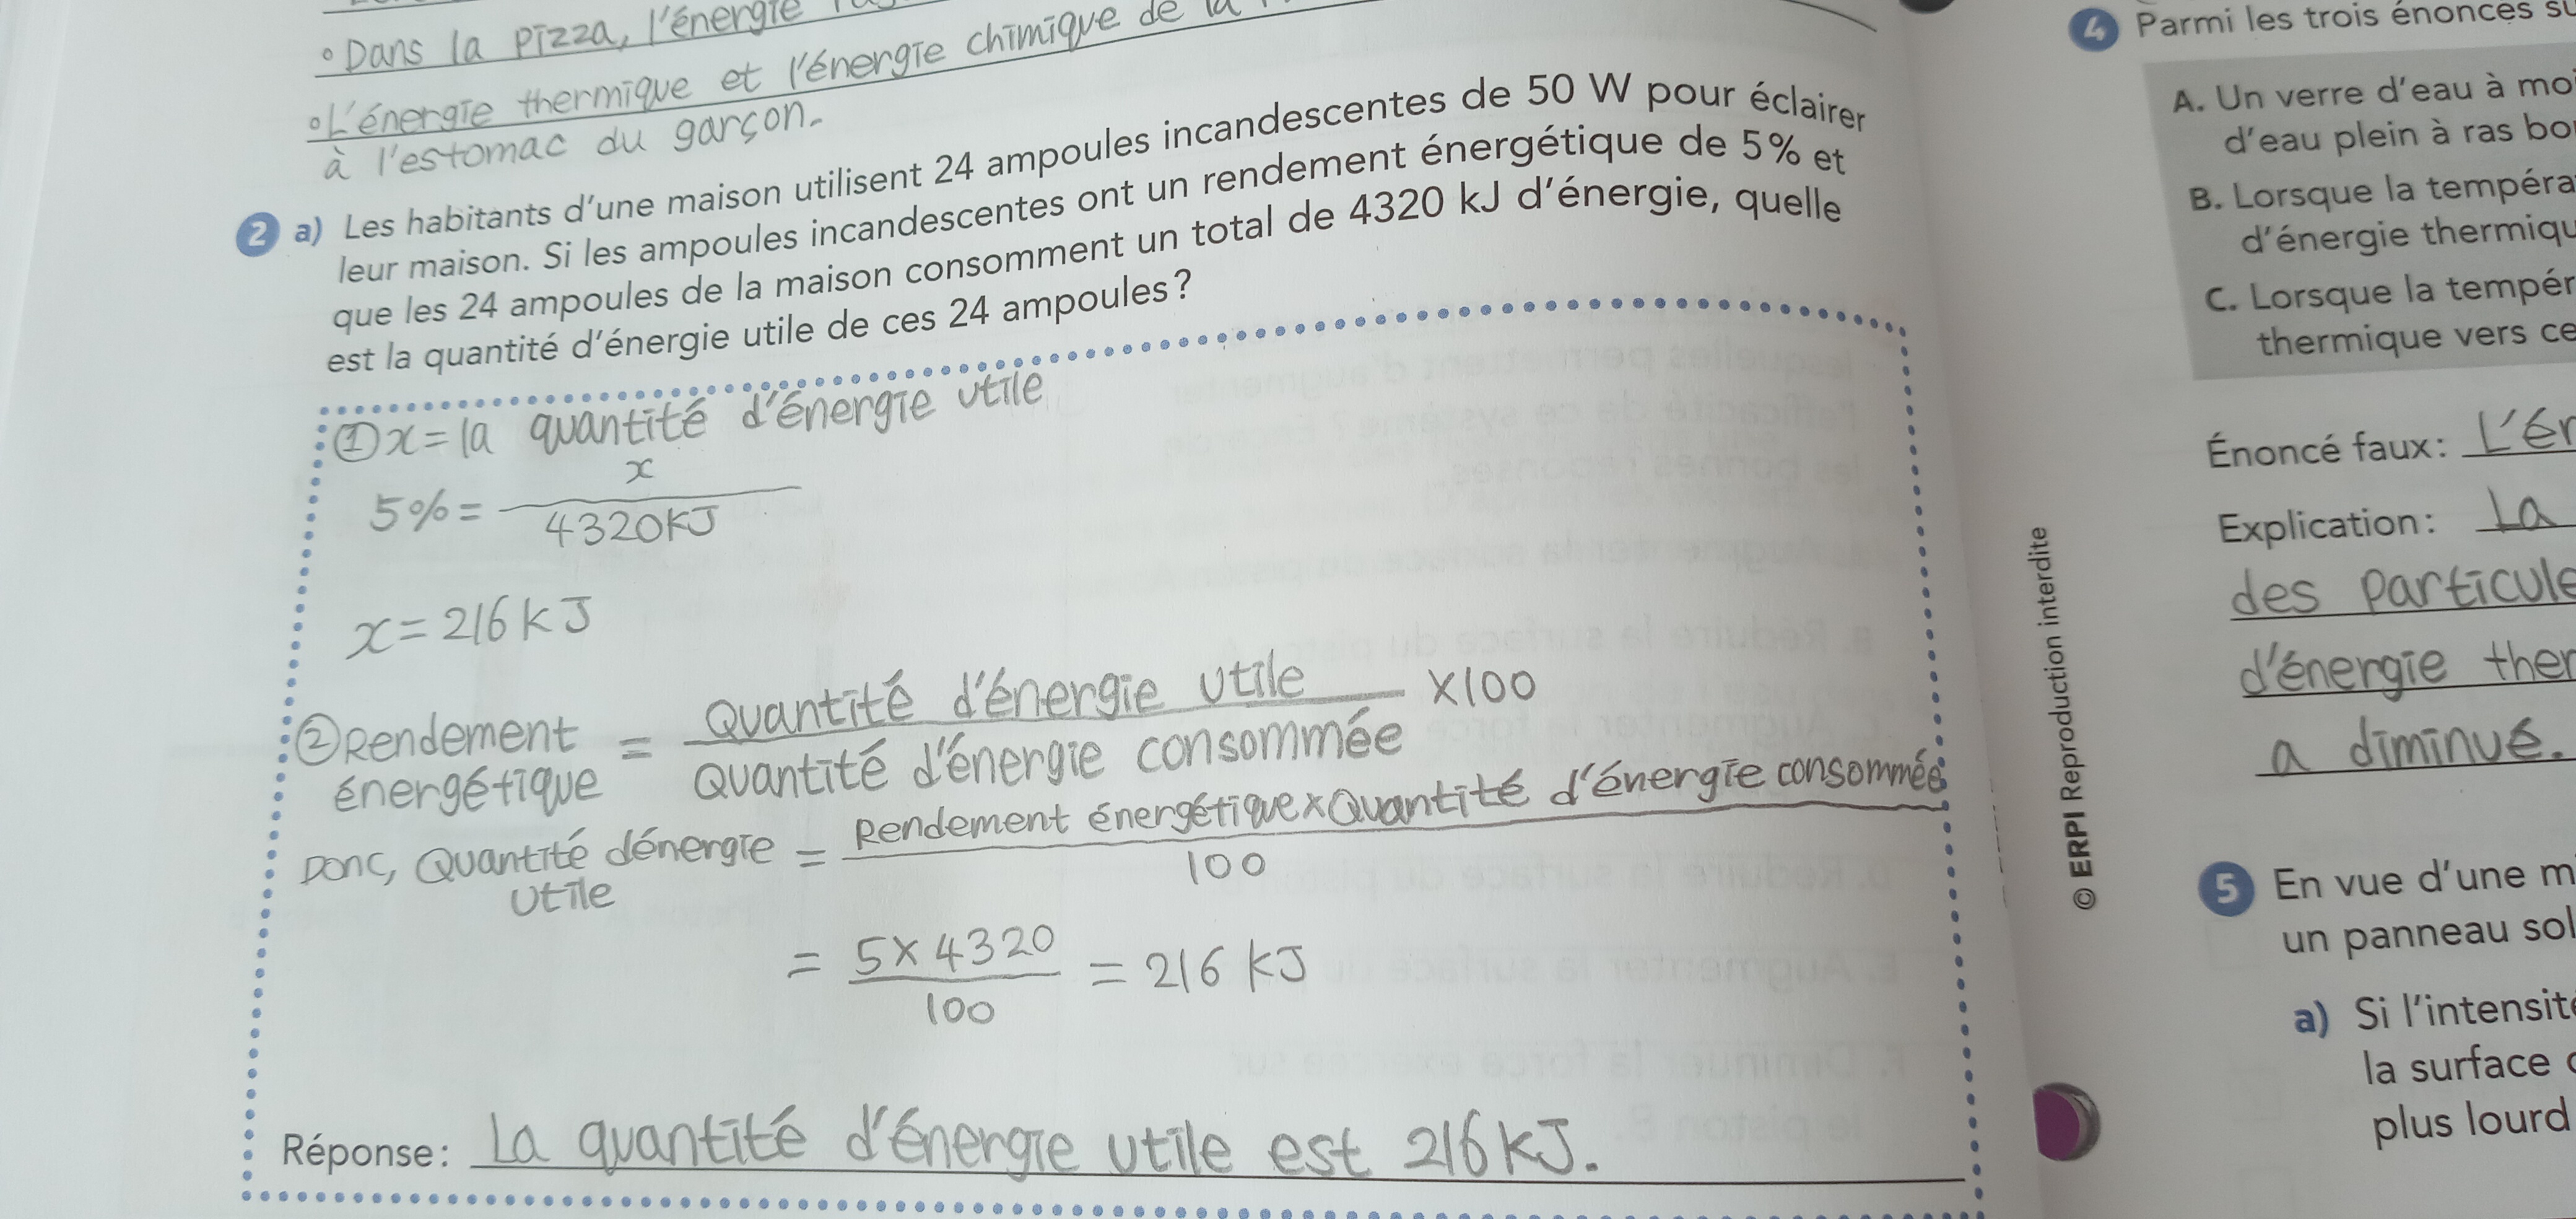 ° Dans la pizza, l'énergie
° L'énergie thermique et l'énergie chimique de la
à l'estomac du garçon.
2 a) Les habitants d'une maison utilisent 24 ampoules incandescentes de 50 W pour éclairer
leur maison. Si les ampoules incandescentes ont un rendement énergétique de 5% et
que les 24 ampoules de la maison consomment un total de 4320 kJ d'énergie, quelle
est la quantité d'énergie utile de ces 24 ampoules?
① x = la quantité d'énergie utile
5% = x / 4320KJ
x = 216 kJ
② Rendement énergétique = Quantité d'énergie utile / Quantité d'énergie consommée X100
Donc, Quantité dénergie utile = Rendement énergétique x Quantité d'énergie consommée / 100
= 5 x 4320 / 100 = 216 kJ
Réponse: La quantité d'énergie utile est 216 kJ.
© ERPI Reproduction interdite
4 Parmi les trois énoncés
A. Un verre d'eau à
d'eau plein à ras
B. Lorsque la
d'énergie
C. Lorsque la
thermique vers
Énoncé faux:
Explication: La
des
d'énergie
a diminué.
5 En vue d'une
un panneau
a) Si
la surface
plus lourd